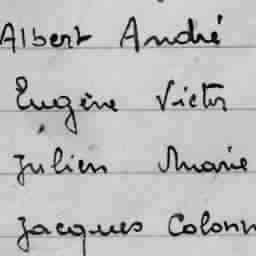 Albert André
Eugène Victor
Julien Marie
Jacques Colonn